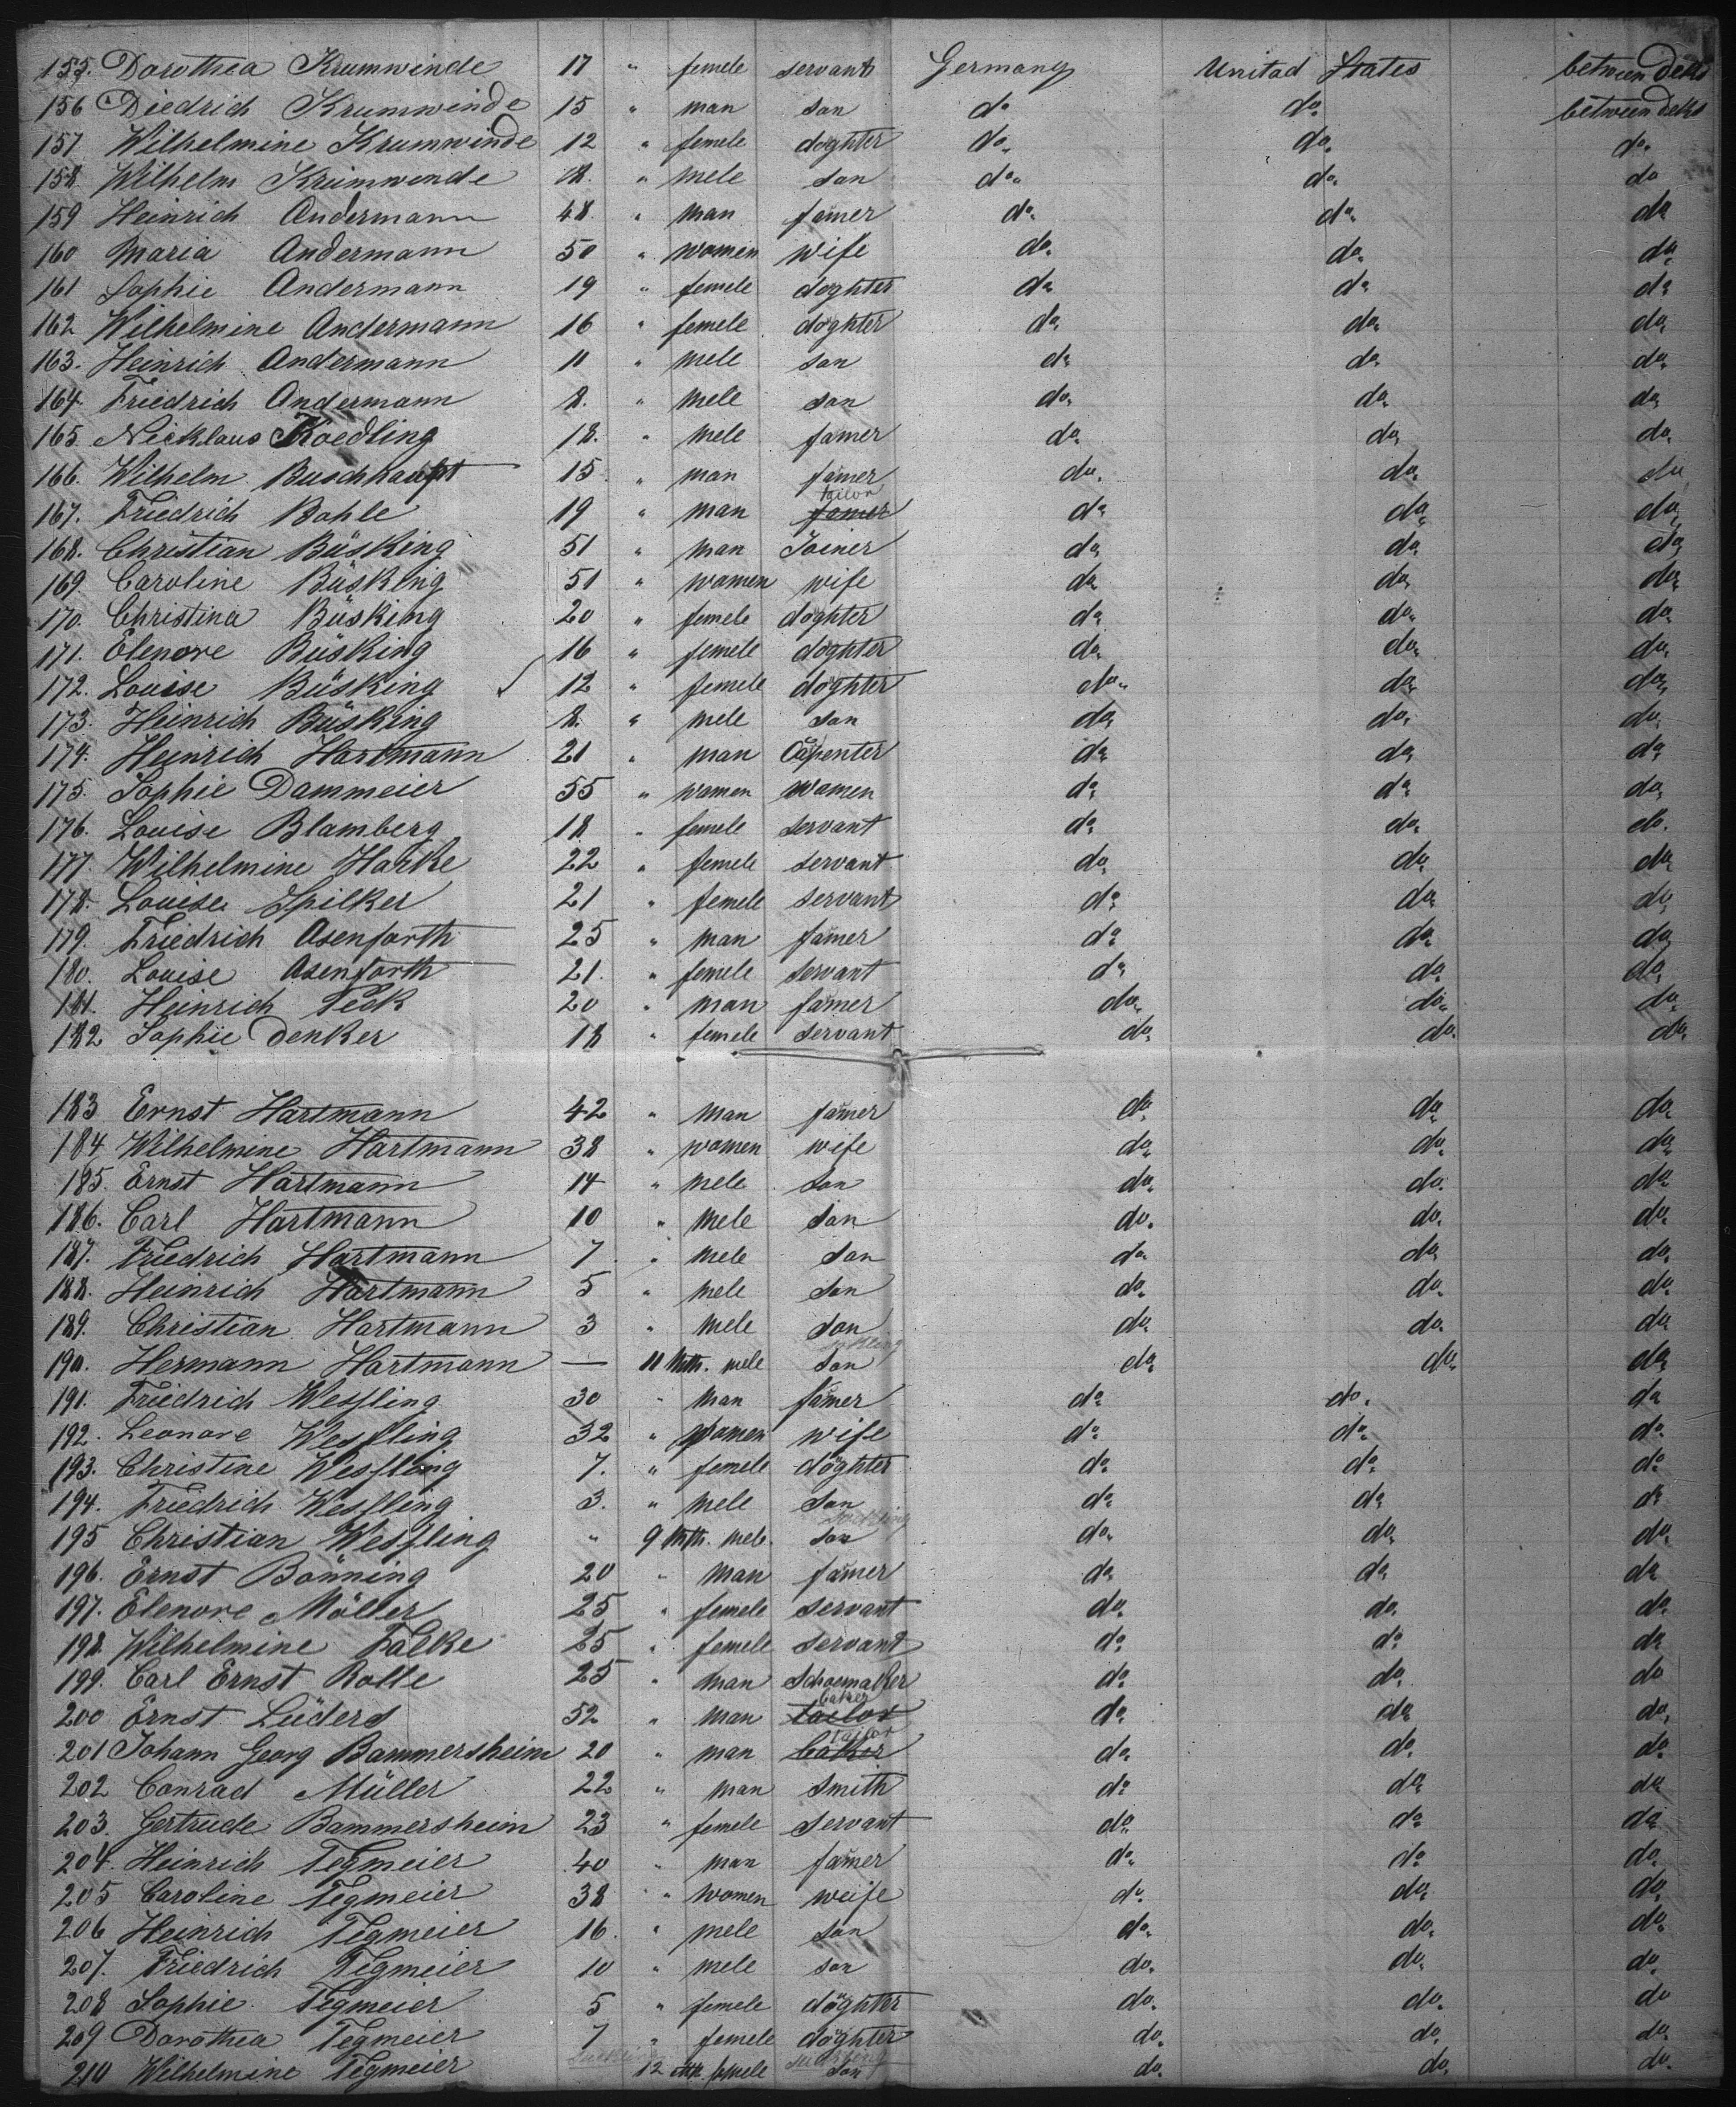 155. Dorothea Krumwinde 17 " femele servant Germany Unitad States between deks
156 Diedrich Krumwinde 15 " man son do do. between deks
157 Wilhelmine Krumwinde 12 " femele doghter do. do. do.
158 Wilhelm Krumwinde 18. " mele son do. do. do
159 Heinrich Andermann 48. " man famer do. do. do
160 Maria Andermann 50 " women wife do. do. do.
161 Sophie Andermann 19 " femele doghter do do do
162 Wilhelmine Andermann 16 " femele doghter do. do. do.
163. Heinrich Andermann 11 " mele son do do. do.
164. Friedrich Andermann 8. " mele son do. do. do.
165 Nicklaus Koedling 18. " mele famer do. do. do.
166. Wilhelm Buschhaupt 15. " man famer do. do. do
167. Friedrich Bohle 19 " man famer tailor do do. do.
168. Christian Büsking 51 " man Joiner do. do. do.
169. Caroline Büsking 51 " women wife do. do. do.
170. Christina Büsking 20 " femele doghter do. do. do.
171. Elenore Büsking 16 " femele doghter do. do. do.
172. Louise Büsking 12 " femele doghter do. do. do.
173. Heinrich Büsking 8. " mele son do. do. do.
174. Heinrich Hartmann 21 " man Capenter do. do. do.
175. Sophie Dammeier 55 " women women do. do. do.
176. Louise Blamberg 18 " femele servant do. do. do.
177. Wilhelmine Harke 22 " femele servant do. do. do.
178. Louise Spilker 21 " femele servant do. do. do.
179. Friedrich Asenforth 25 " man famer do. do. do.
180. Louise Asenforth 21. " femele servant do. do. do.
181. Heinrich Peck 20 " man famer do. do. do.
182 Sophie Denker 18 " femele servant do. do. do.
183 Ernst Hartmann 42 " man famer do. do. do.
184 Wilhelmine Hartmann 38 " women wife do. do. do.
185. Ernst Hartmann 14 " mele son do. do. do.
186. Carl Hartmann 10 " mele son do. do. do.
187. Friedrich Hartmann 7 " mele son do. do. do.
188. Heinrich Hartmann 5 " mele son do. do. do.
189. Christian Hartmann 3 " mele son do. do. do.
190. Hermann Hartmann — 11 Mth. mele son do. do. do.
191. Friedrich Wessling 30 " man famer do. do. do.
192. Leonore Wessling 32 " women wife do. do. do.
193. Christine Wessling 7. " femele döghter do. do. do.
194. Friedrich Wessling 3. " mele son do. do. do.
195 Christian Wessling " 9 Mth. mele son suckling do. do. do.
196. Ernst Bönning 20 " man famer do. do. do.
197. Elenore Möller 25 " femele servant do. do. do.
198. Wilhelmine Falke 25 " femele servant do. do. do.
199. Carl Ernst Rolle 25 " man Schoemaker do. do. do
200 Ernst Lüders 52 " man tailor baker do. do. do.
201 Johann Georg Bammersheim 20 " man baker tailor do. do. do.
202 Conrad Müller 22 " man Smith do. do. do.
203. Gertrude Bammersheim 23 " femele servant do. do. do.
204. Heinrich Tegmeier 40 " man famer do. do. do.
205 Caroline Tegmeier 38 " women weife do. do. do.
206 Heinrich Tegmeier 16. " mele son do. do. do.
207. Friedrich Tegmeier 10 " mele son do. do. do.
208 Sophie Tegmeier 5 " femele döghter do. do. do
209 Dorothea Tegmeier 7 " femele döghter do. do. do.
210 Wilhelmine Tegmeier 12 Mth. femele son suckling do. do. do.